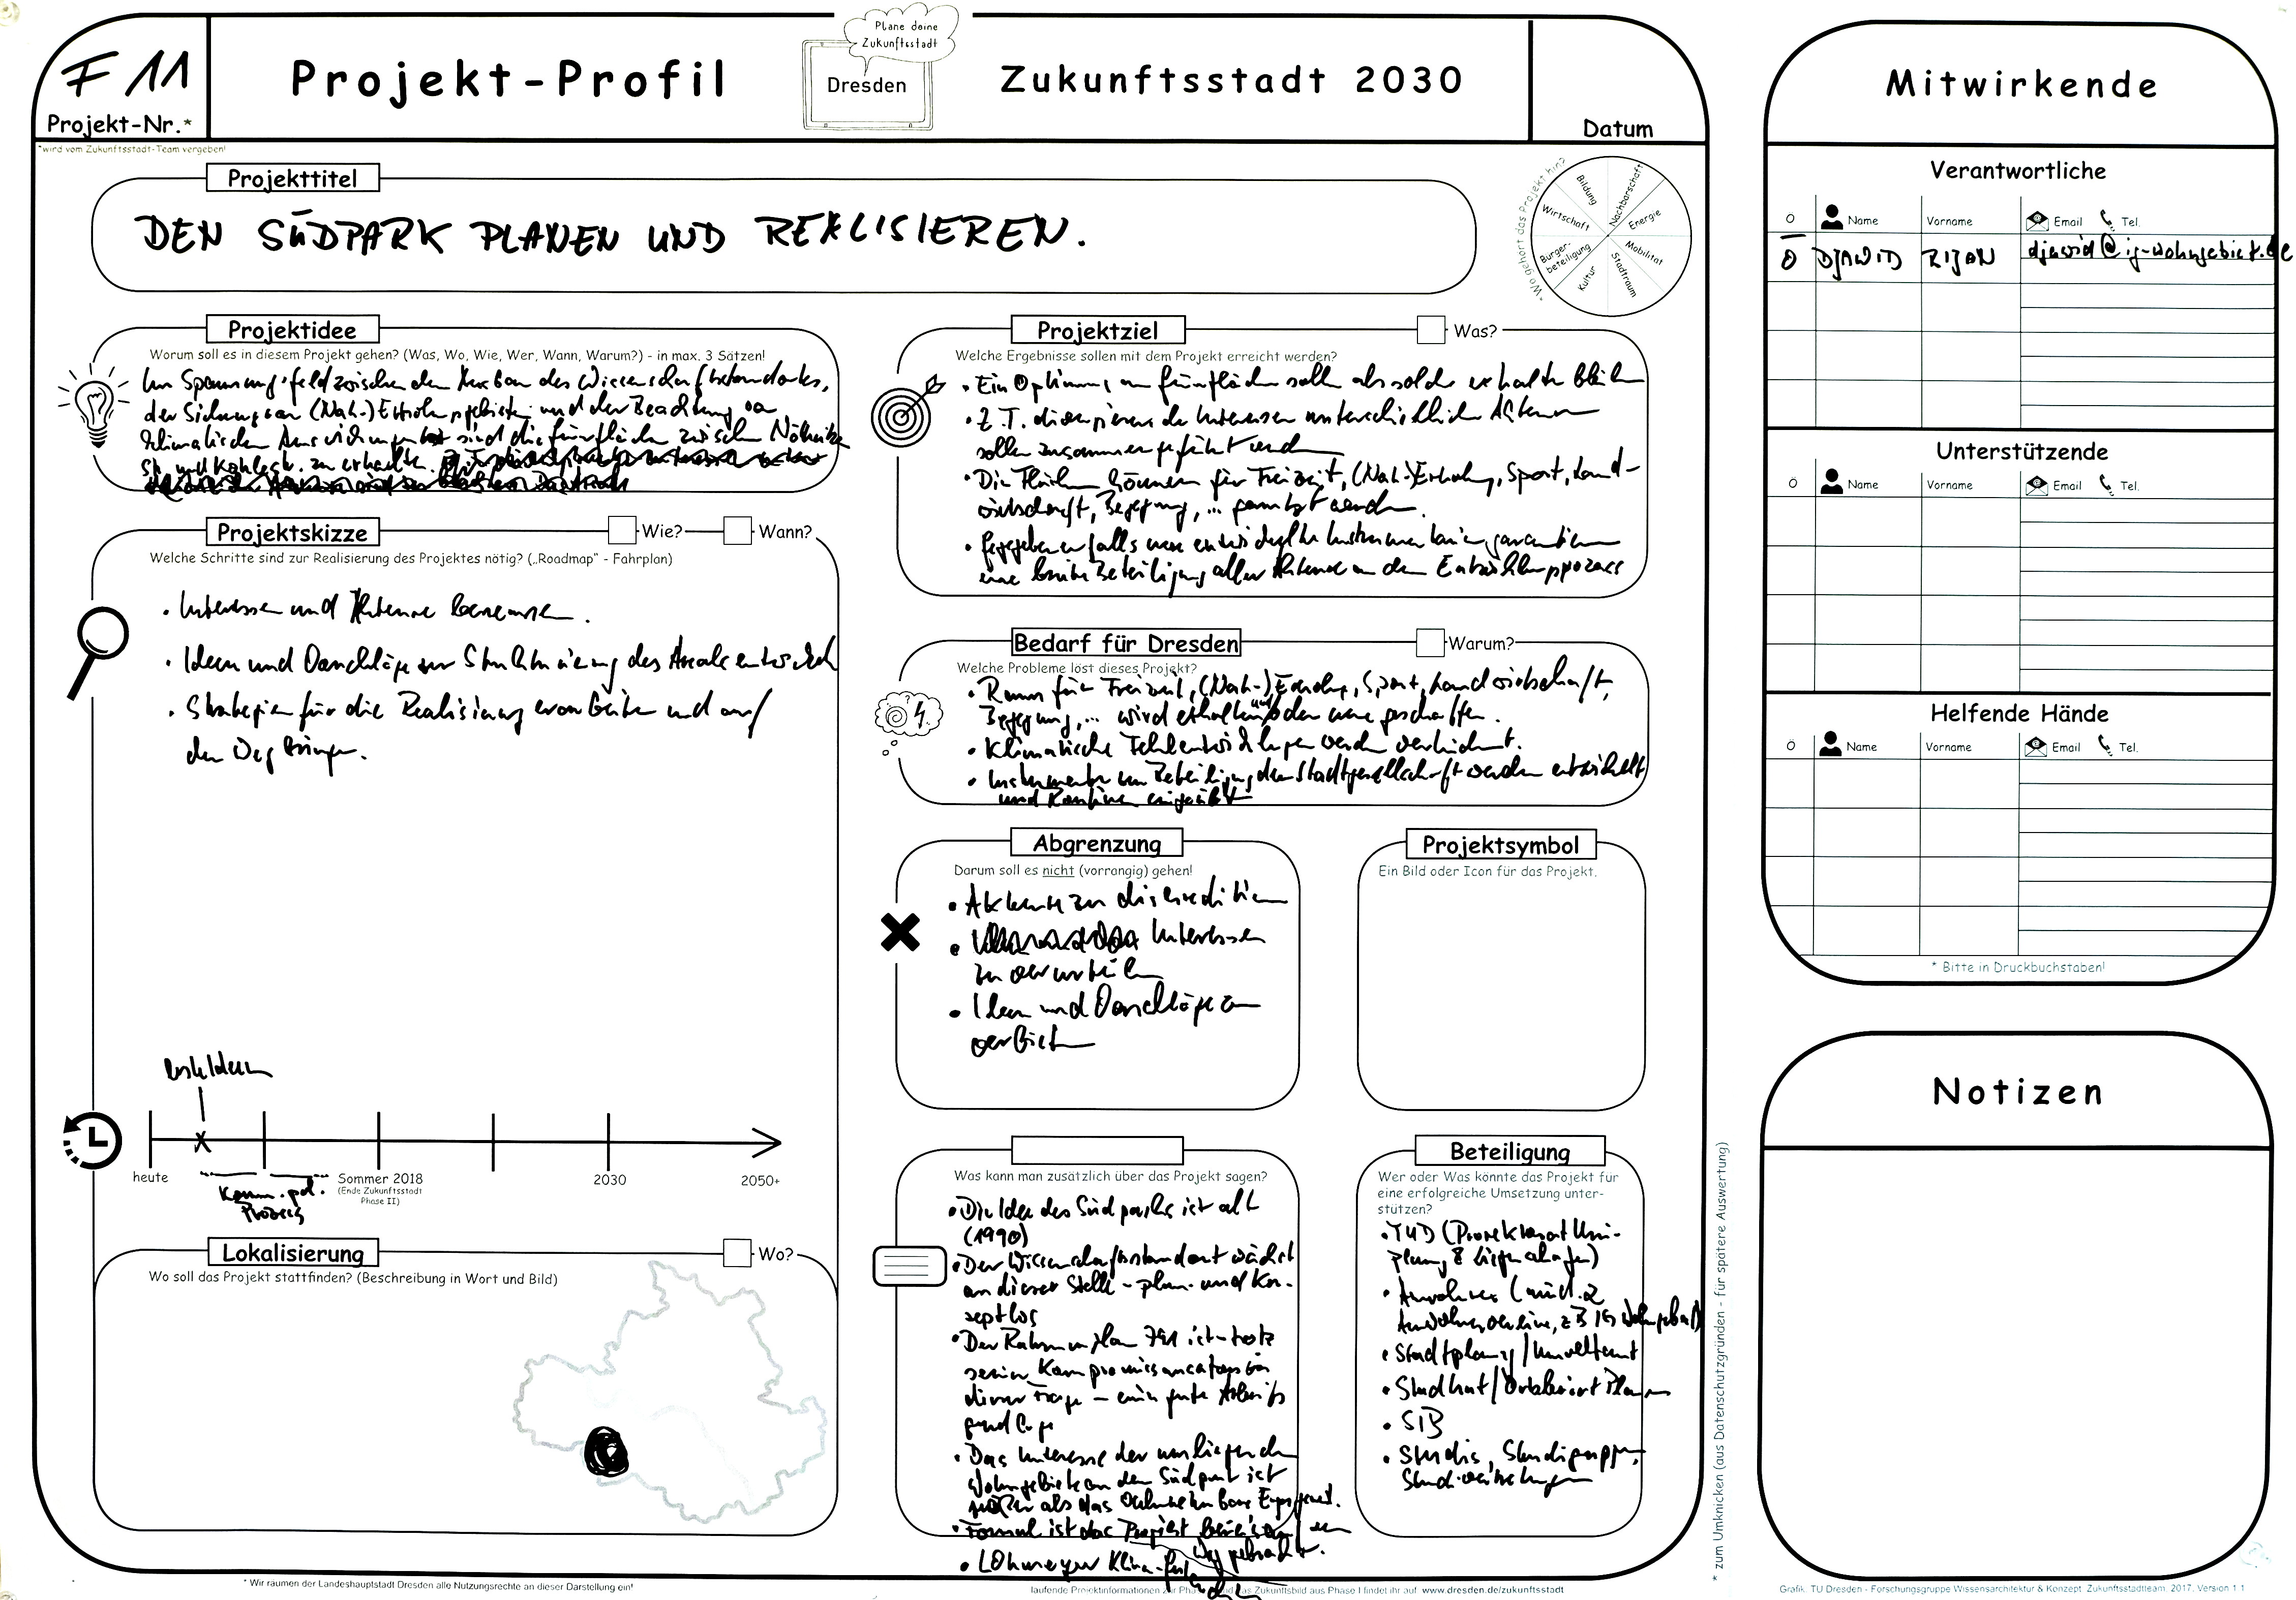 F 11
Projekt-Nr.*
*wird vom Zukunftsstadt-Team vergeben!
Projekt-Profil
Plane deine
Zukunftsstadt
Dresden
Zukunftsstadt 2030
Datum
Projekttitel
DEN SÜDPARK PLANEN UND REALISIEREN.
*Wo gehört das Projekt hin?
Bildung
Nachbarschaft
Wirtschaft
Energie
Bürger-
beteiligung
Mobilität
Kultur
Stadtraum
Projektidee
Worum soll es in diesem Projekt gehen? (Was, Wo, Wie, Wer, Wann, Warum?) - in max. 3 Sätzen!
Im Spannungsfeld zwischen dem Ausbau des Wissenschaftsstandortes,
der Sicherung von (Nah-)Erholungsgebieten und der Beachtung von
klimatischen Auswirkungen sind die Grünflächen zwischen Nöthnitzer
Str. und Kohlestr. zu erhalten.
Projektskizze
Wie?
Wann?
Welche Schritte sind zur Realisierung des Projektes nötig? („Roadmap“ - Fahrplan)
• Interessen und Akteure benennen.
• Ideen und Vorschläge zur Strukturierung des Areals entwickeln
• Strategien für die Realisierung erarbeiten und auf
den Weg bringen.
heute
Komm. pol.
Prozess
Sommer 2018
(Ende Zukunftsstadt
Phase II)
2030
2050+
Lokalisierung
Wo?
Wo soll das Projekt stattfinden? (Beschreibung in Wort und Bild)
* Wir räumen der Landeshauptstadt Dresden alle Nutzungsrechte an dieser Darstellung ein!
Projektziel
Was?
Welche Ergebnisse sollen mit dem Projekt erreicht werden?
• Ein Optimum an Grünflächen soll als solche erhalten bleiben
• Z.T. divergierende Interessen unterschiedlicher Akteure
sollen zusammengeführt werden
• Die Flächen können für Freizeit, (Nah-)Erholung, Sport, Land-
wirtschaft, Begegnung, ... genutzt werden.
• Gegebenenfalls neu entwickelte Instrumentarien garantieren
eine breite Beteiligung aller Akteure an dem Entwicklungsprozess
Bedarf für Dresden
Warum?
Welche Probleme löst dieses Projekt?
• Raum für Freizeit, (Nah-)Erholung, Sport, Landwirtschaft,
Begegnung, ... wird erhalten und/oder neu geschaffen.
• Klimatische Fehlentwicklungen werden verhindert.
• Instrumente zur Beteiligung der Stadtgesellschaft werden entwickelt
und Routinen eingeübt
Abgrenzung
Darum soll es nicht (vorrangig) gehen!
• Akteure zu diskreditieren
• Interessen
zu verurteilen
• Ideen und Vorschläge zu
verbieten
Projektsymbol
Ein Bild oder Icon für das Projekt.
Was kann man zusätzlich über das Projekt sagen?
• Die Idee des Südparks ist alt
(1990)
• Der Wissenschaftsstandort wächst
an dieser Stelle - plan- und kon-
zeptlos
• Der Rahmenplan 791 ist - trotz
seines Kompromisscharakters in
dieser Frage - eine gute Arbeits
grundlage
• Das Interesse der umliegenden
Wohngebiete an dem Südpark ist
größer als das wahrnehmbare Engagement.
• Formal ist das Projekt bereits auf den
Weg gebracht.
• Lohmeyer Klima-Gutachten
Beteiligung
Wer oder Was könnte das Projekt für
eine erfolgreiche Umsetzung unter-
stützen?
• TUD (Prorektorat Uni-
planung & Liegenschaften)
• Anwohner (und
Anwohnervereine, z B IG Wohngebiet)
• Stadtplanung / Umweltamt
• Stadtrat / Ortsbeirat Plauen
• SIB
• Studis, Studigruppen,
Studivertretungen
laufende Projektinformationen zur Phase II und das Zukunftsbild aus Phase I findet ihr auf www.dresden.de/zukunftsstadt
* zum Umknicken (aus Datenschutzgründen - für spätere Auswertung)
Mitwirkende
Verantwortliche
Ö Name Vorname Email Tel.
Ö DJAWID RIJAN djawid@ig-wohngebiet.de
Unterstützende
Ö Name Vorname Email Tel.
Helfende Hände
Ö Name Vorname Email Tel.
* Bitte in Druckbuchstaben!
Notizen
Grafik: TU Dresden - Forschungsgruppe Wissensarchitektur & Konzept: Zukunftsstadtteam, 2017, Version 1.1